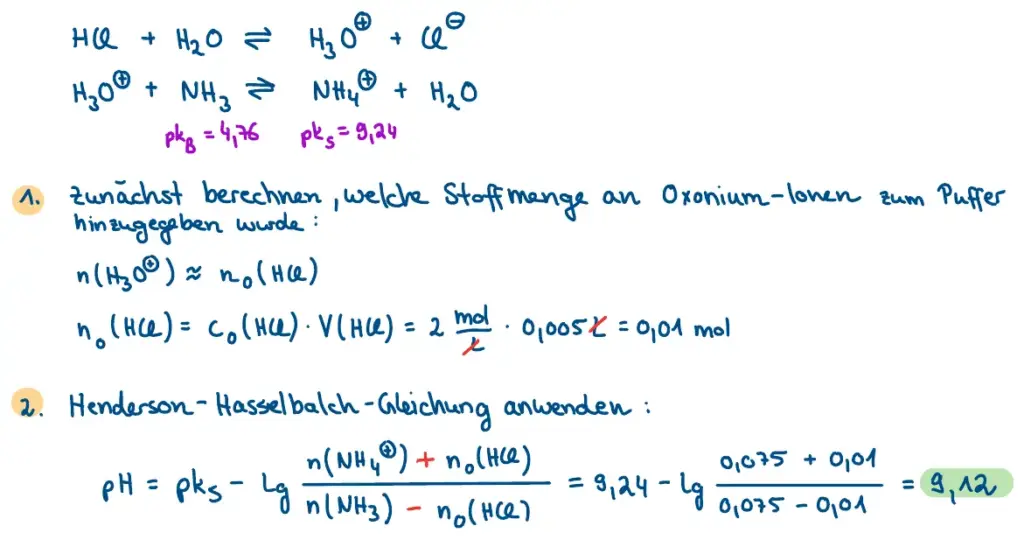 HCl + H₂O ⇌ H₃O⊕ + Cl⊖
H₃O⊕ + NH₃ ⇌ NH₄⊕ + H₂O
pkB = 4,76 pks = 9,24
1. Zunächst berechnen, welche Stoffmenge an Oxonium-Ionen zum Puffer
hinzugegeben wurde:
n(H₃O⊕) ≈ n₀(HCl)
n₀(HCl) = c₀(HCl) · V(HCl) = 2 mol/L · 0,005 L = 0,01 mol
2. Henderson-Hasselbalch-Gleichung anwenden:
pH = pks - lg (n(NH₄⊕) + n₀(HCl))/(n(NH₃) - n₀(HCl)) = 9,24 - lg (0,075 + 0,01)/(0,075 - 0,01) = 9,12